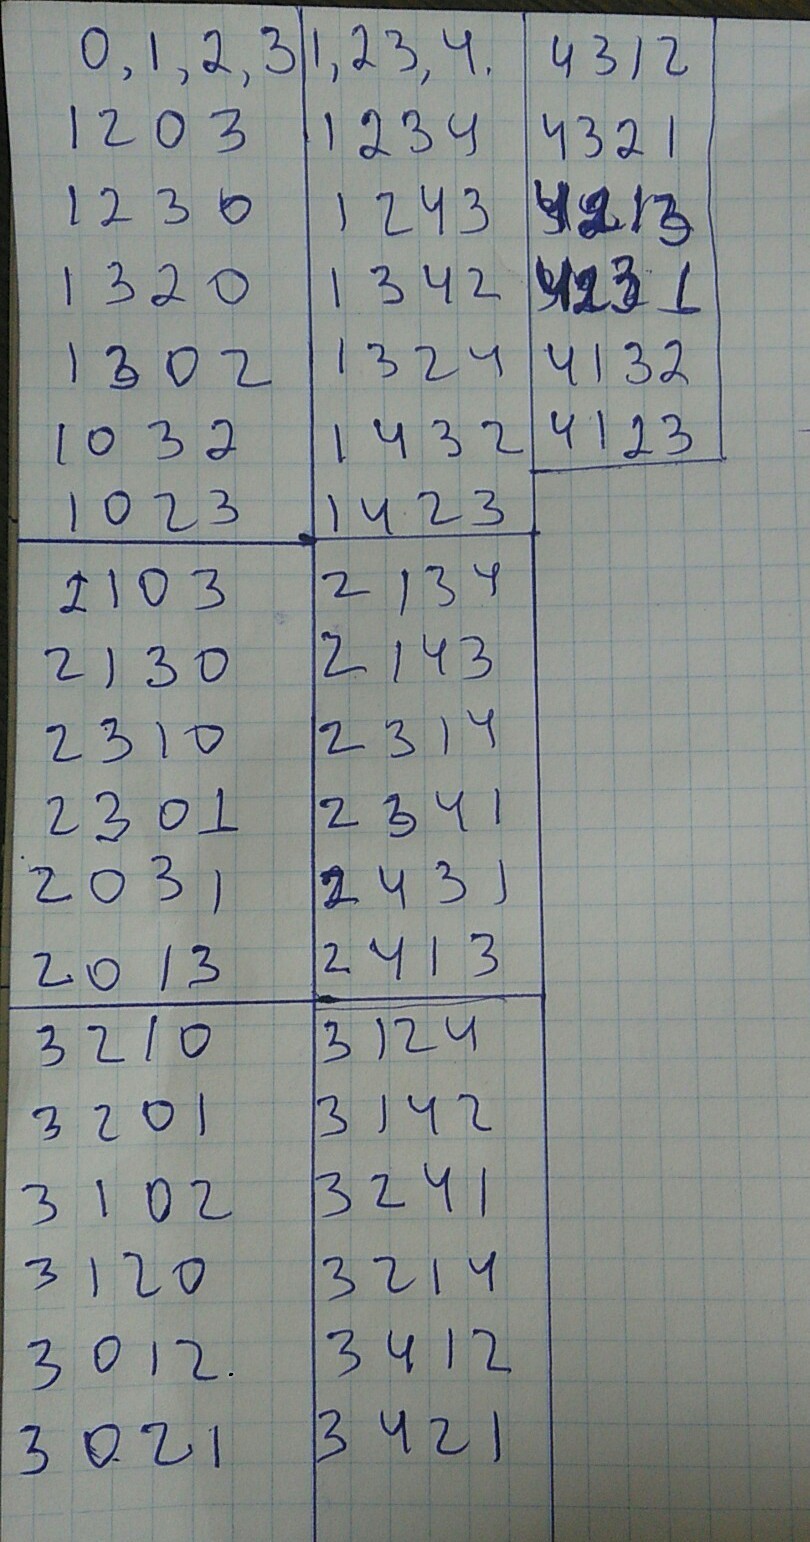 0, 1, 2, 3
1203
1230
1320
1302
1032
1023
2103
2130
2310
2301
2031
2013
3210
3201
3102
3120
3012.
3021
1, 23, 4.
1234
1243
1342
1324
1432
1423
2134
2143
2314
2341
2431
2413
3124
3142
3241
3214
3412
3421
4312
4321
4213
4231
4132
4123